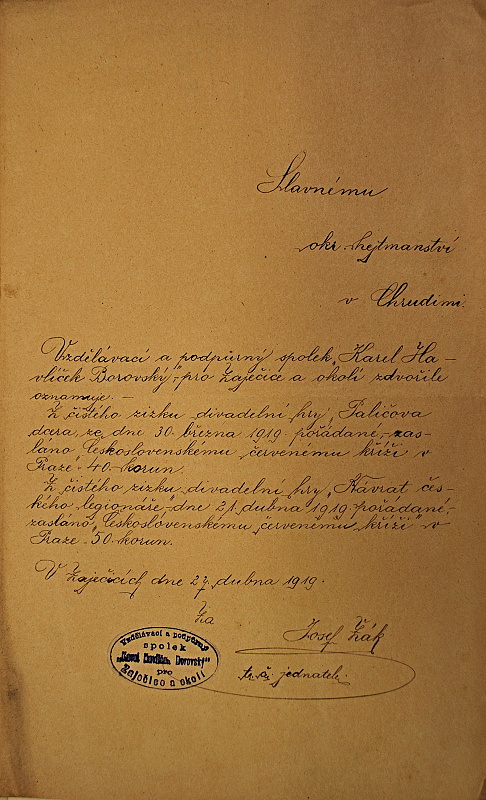 Slavnému
okr. hejtmanství
v Chrudimi.
Vzdělávací a podpůrný spolek „Karel Ha-
vlíček Borovský"-pro Zaječice a okolí zdvořile
oznamuje. -
Z čistého zisku divadelní hry „Paličova
dcera" ze dne 30. března 1919. pořádané,- zas-
láno Československému červenému kříži v
Praze -40- korun.
Z čistého zisku divadelní hry „Návrat čes-
kého legionáře"-dne 21. dubna 1919 pořádané,-
zasláno „Československému červenému kříži" v
Praze 50- korun.
V Zaječicích dne 27. dubna 1919.
Za
Josef Žák
jednatel.
Vzdělávací a podpůrný
spolek
„Karel Havlíček Borovský"
pro
Zaječice a okolí